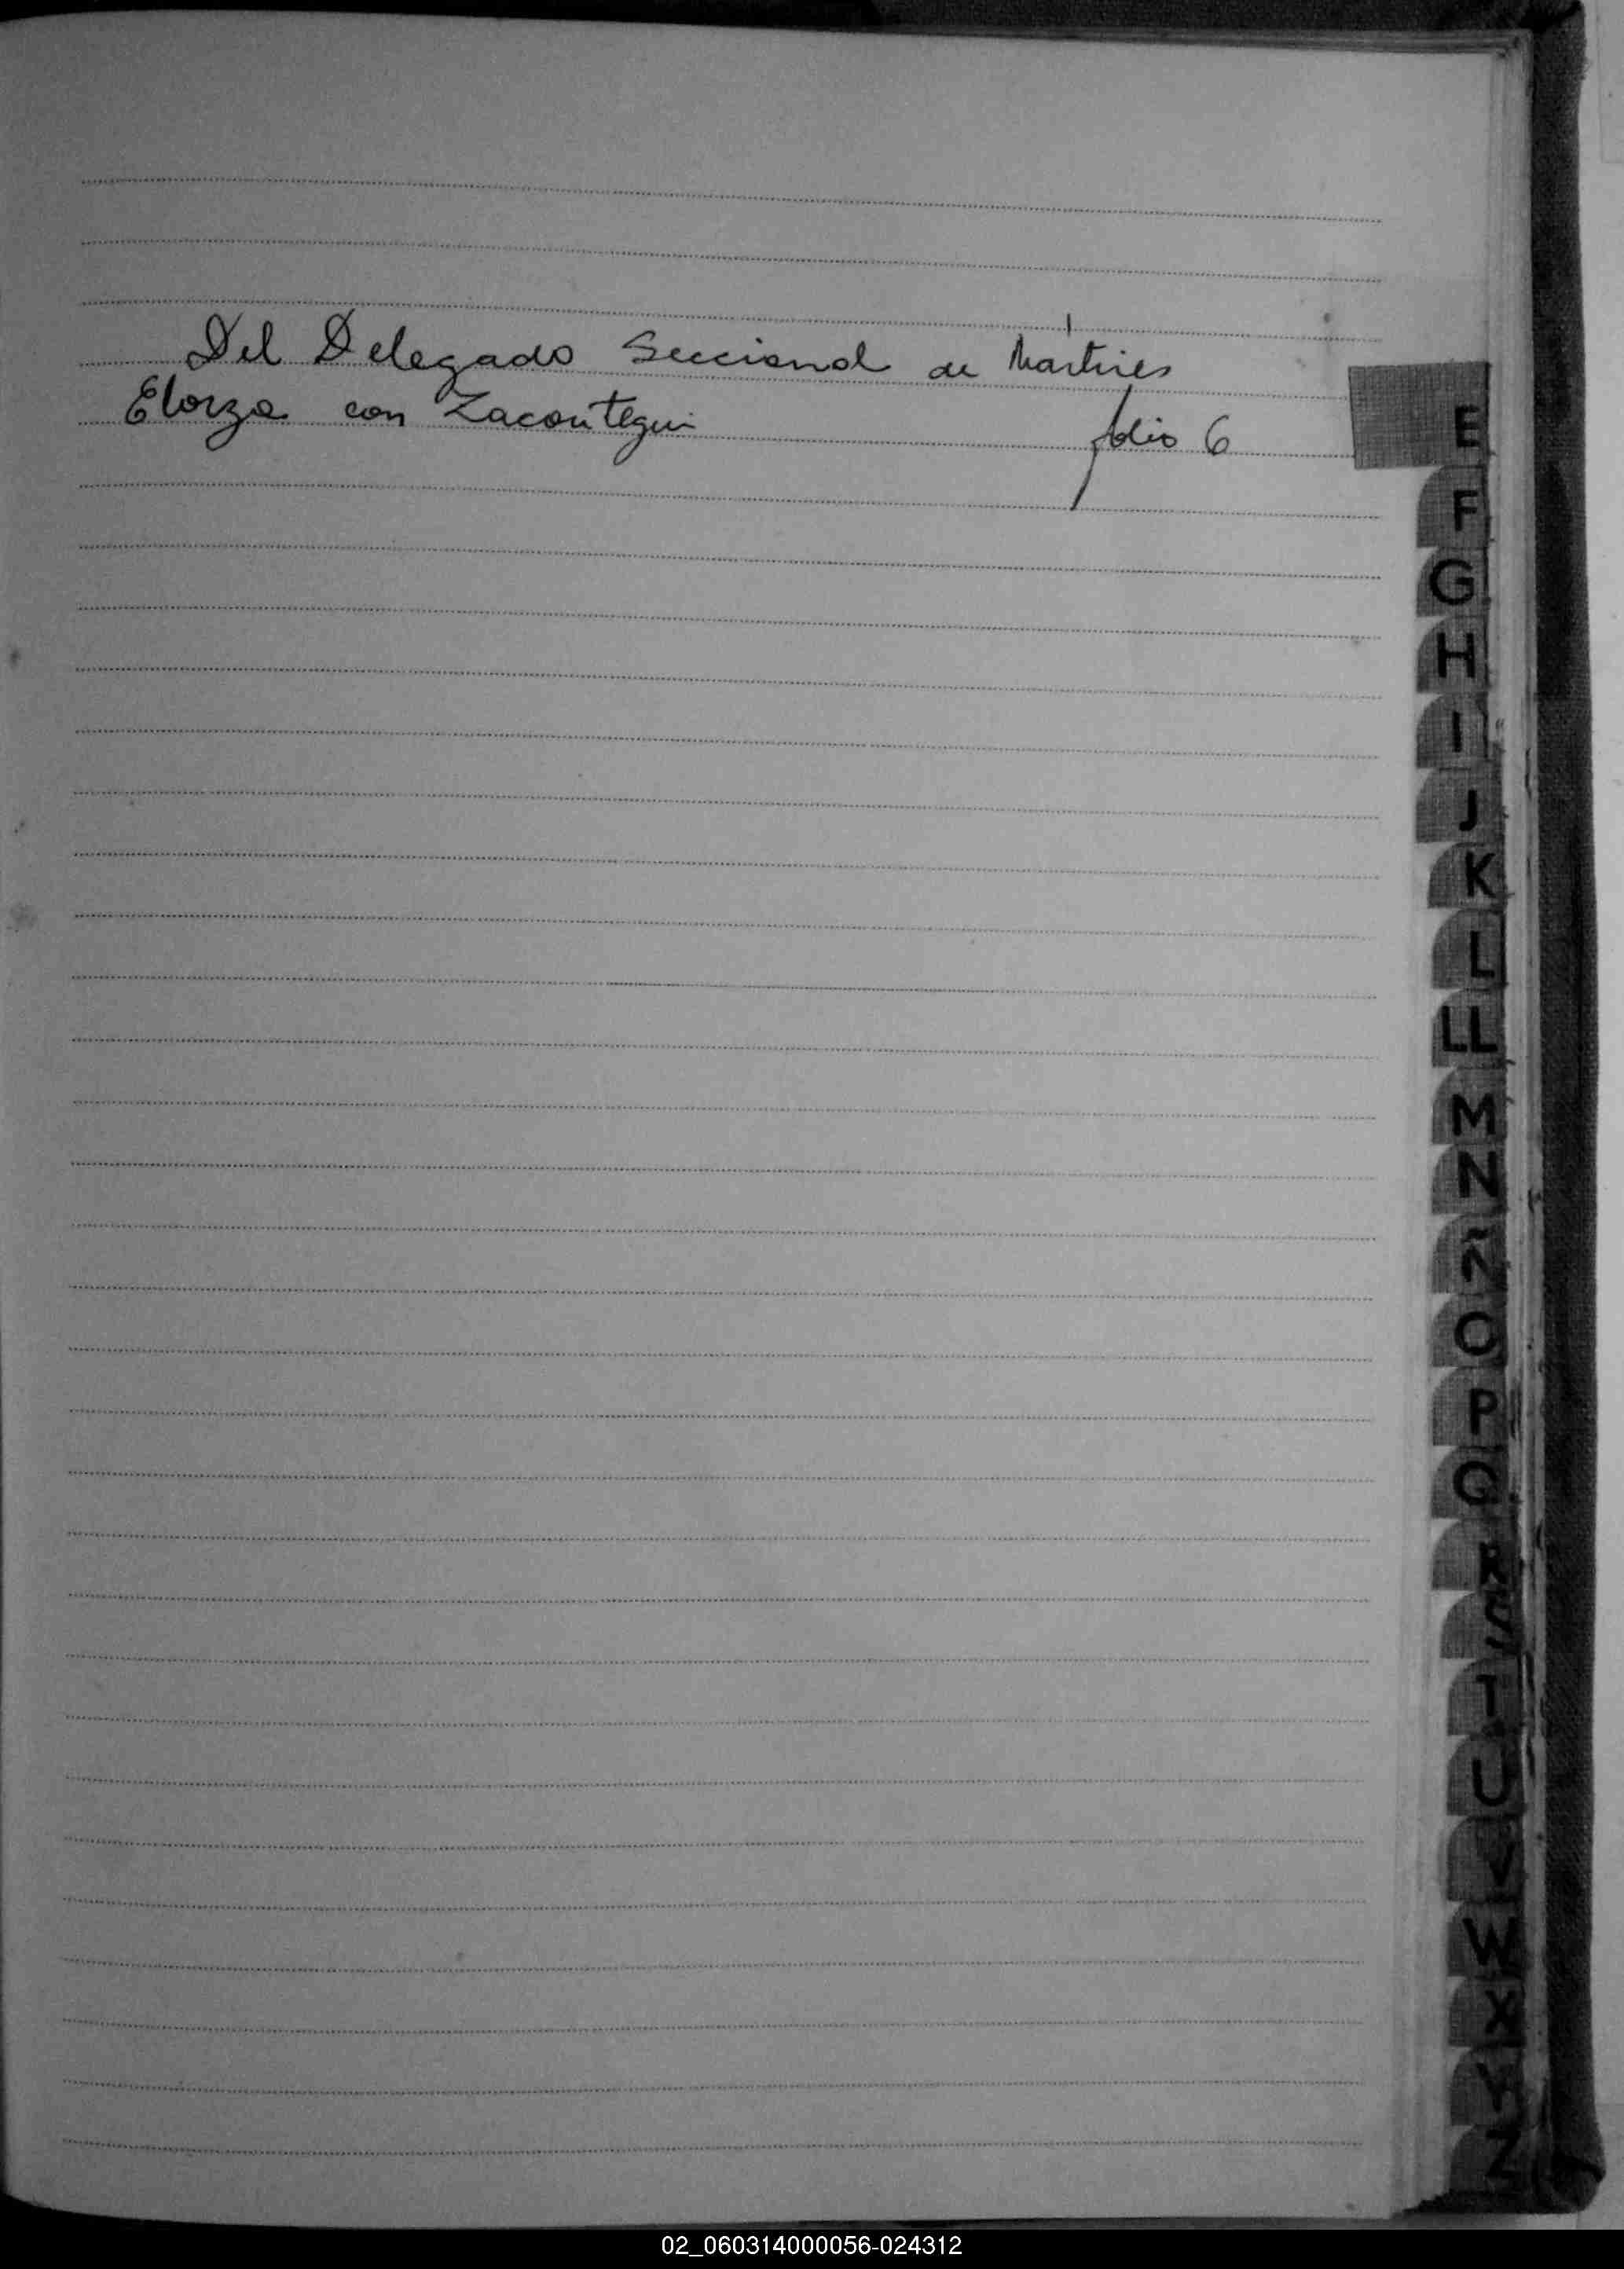 Del Delegado Seccional de Mártires
Elorza con Zacontegui
folio 6
E
F
G
H
I
J
K
L
LL
M
N
Ñ
O
P
Q
R
S
T
U
V
W
X
Y
Z
02_060314000056-024312